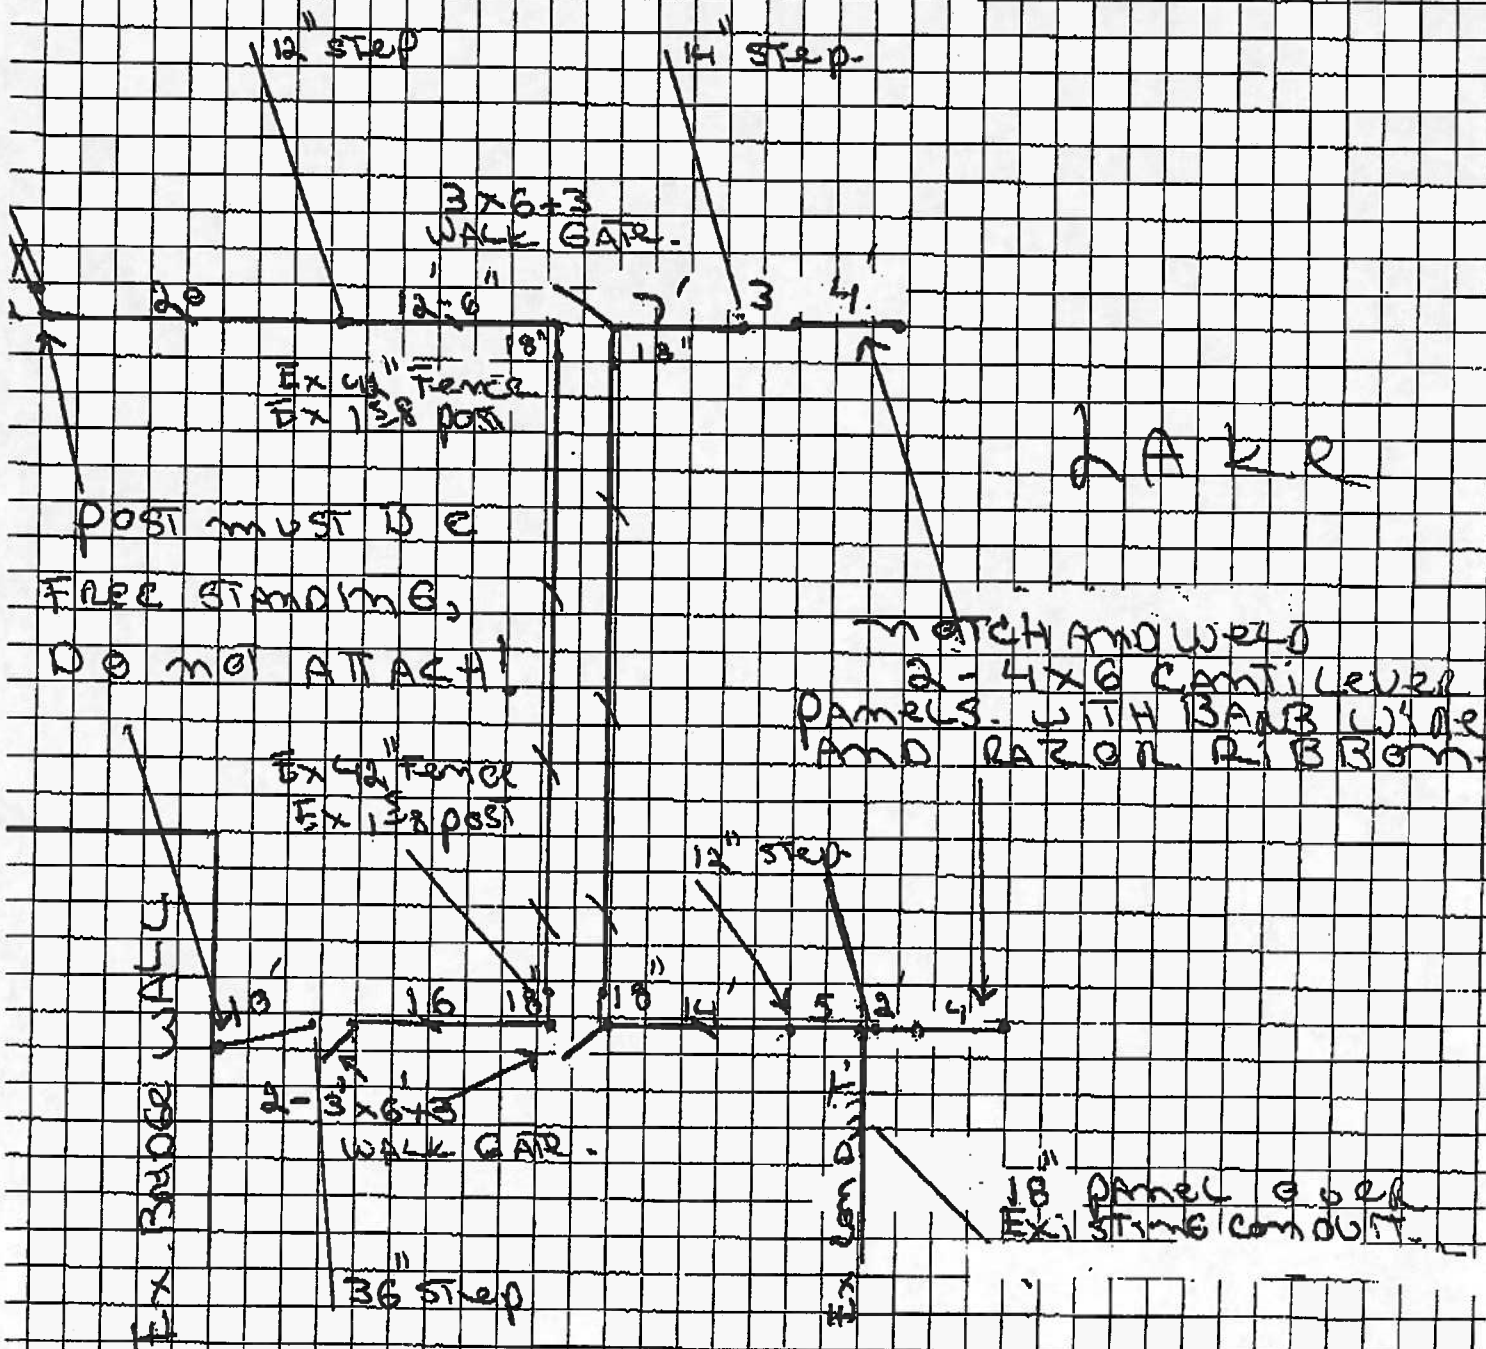 12" STEP
14" STEP.
3 x 6 + 3
WALK GATE.
20
12'-6"
7'
3
4'
18"
18"
Ex 42" Fence
Ex 1 5/8 post
LAKE
POST MUST BE
FREE STANDING,
DO NOT ATTACH!
NOTCH AND WELD
2 - 4x6 CANTILEVER
PANELS. WITH BARB WIRE
AND RAZOR RIBBON.
Ex 42" Fence
Ex 1 5/8 post
12" STEP.
Ex. BRIDGE WALL
10'
16
18"
18"
14'
5
2'
4'
2 - 3' x 6' + 3
WALK GATE.
18" PANEL OVER
EXISTING CONDUIT.
36" STEP